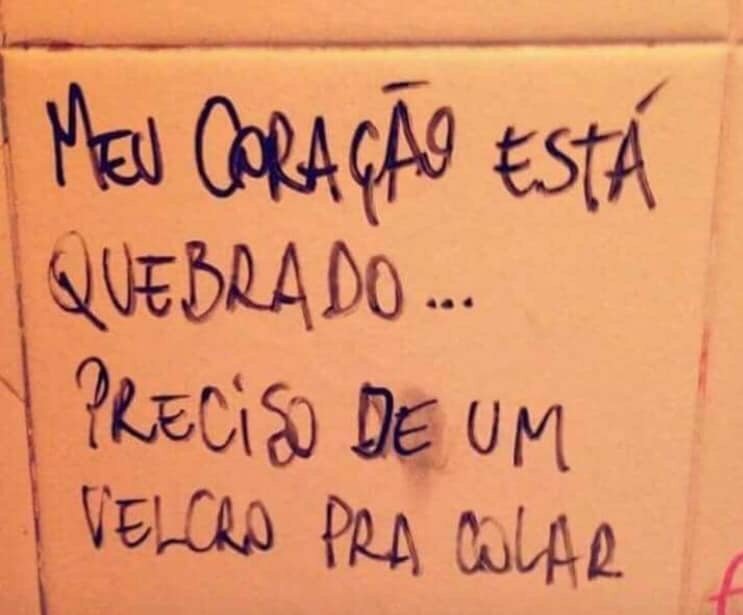 MEU CORAÇÃO ESTÁ
QUEBRADO...
PRECISO DE UM
VELCRO PRA COLAR